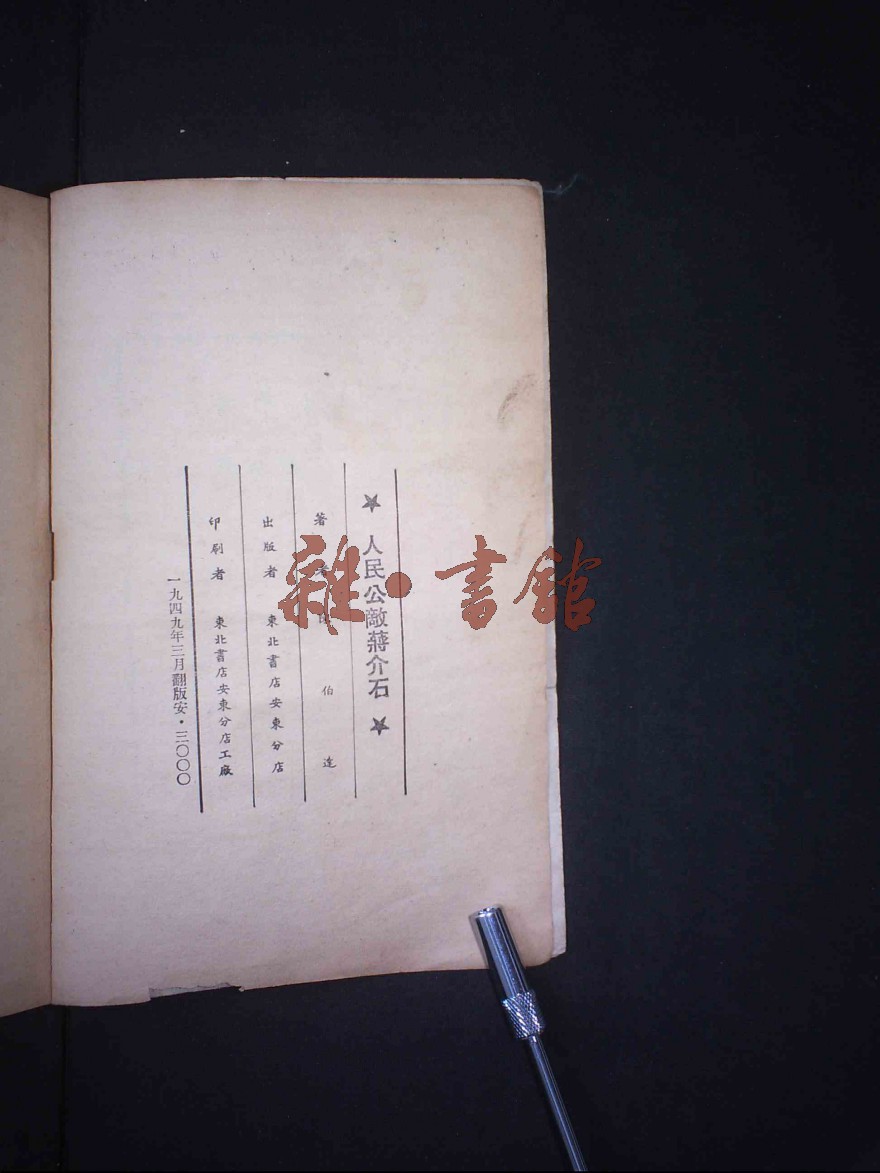 ★ 人民公敵蔣介石 ★
著者 陳伯達
出版者 東北書店安東分店
印刷者 東北書店安東分店工廠
一九四九年三月翻版安·三〇〇〇
雜·書館